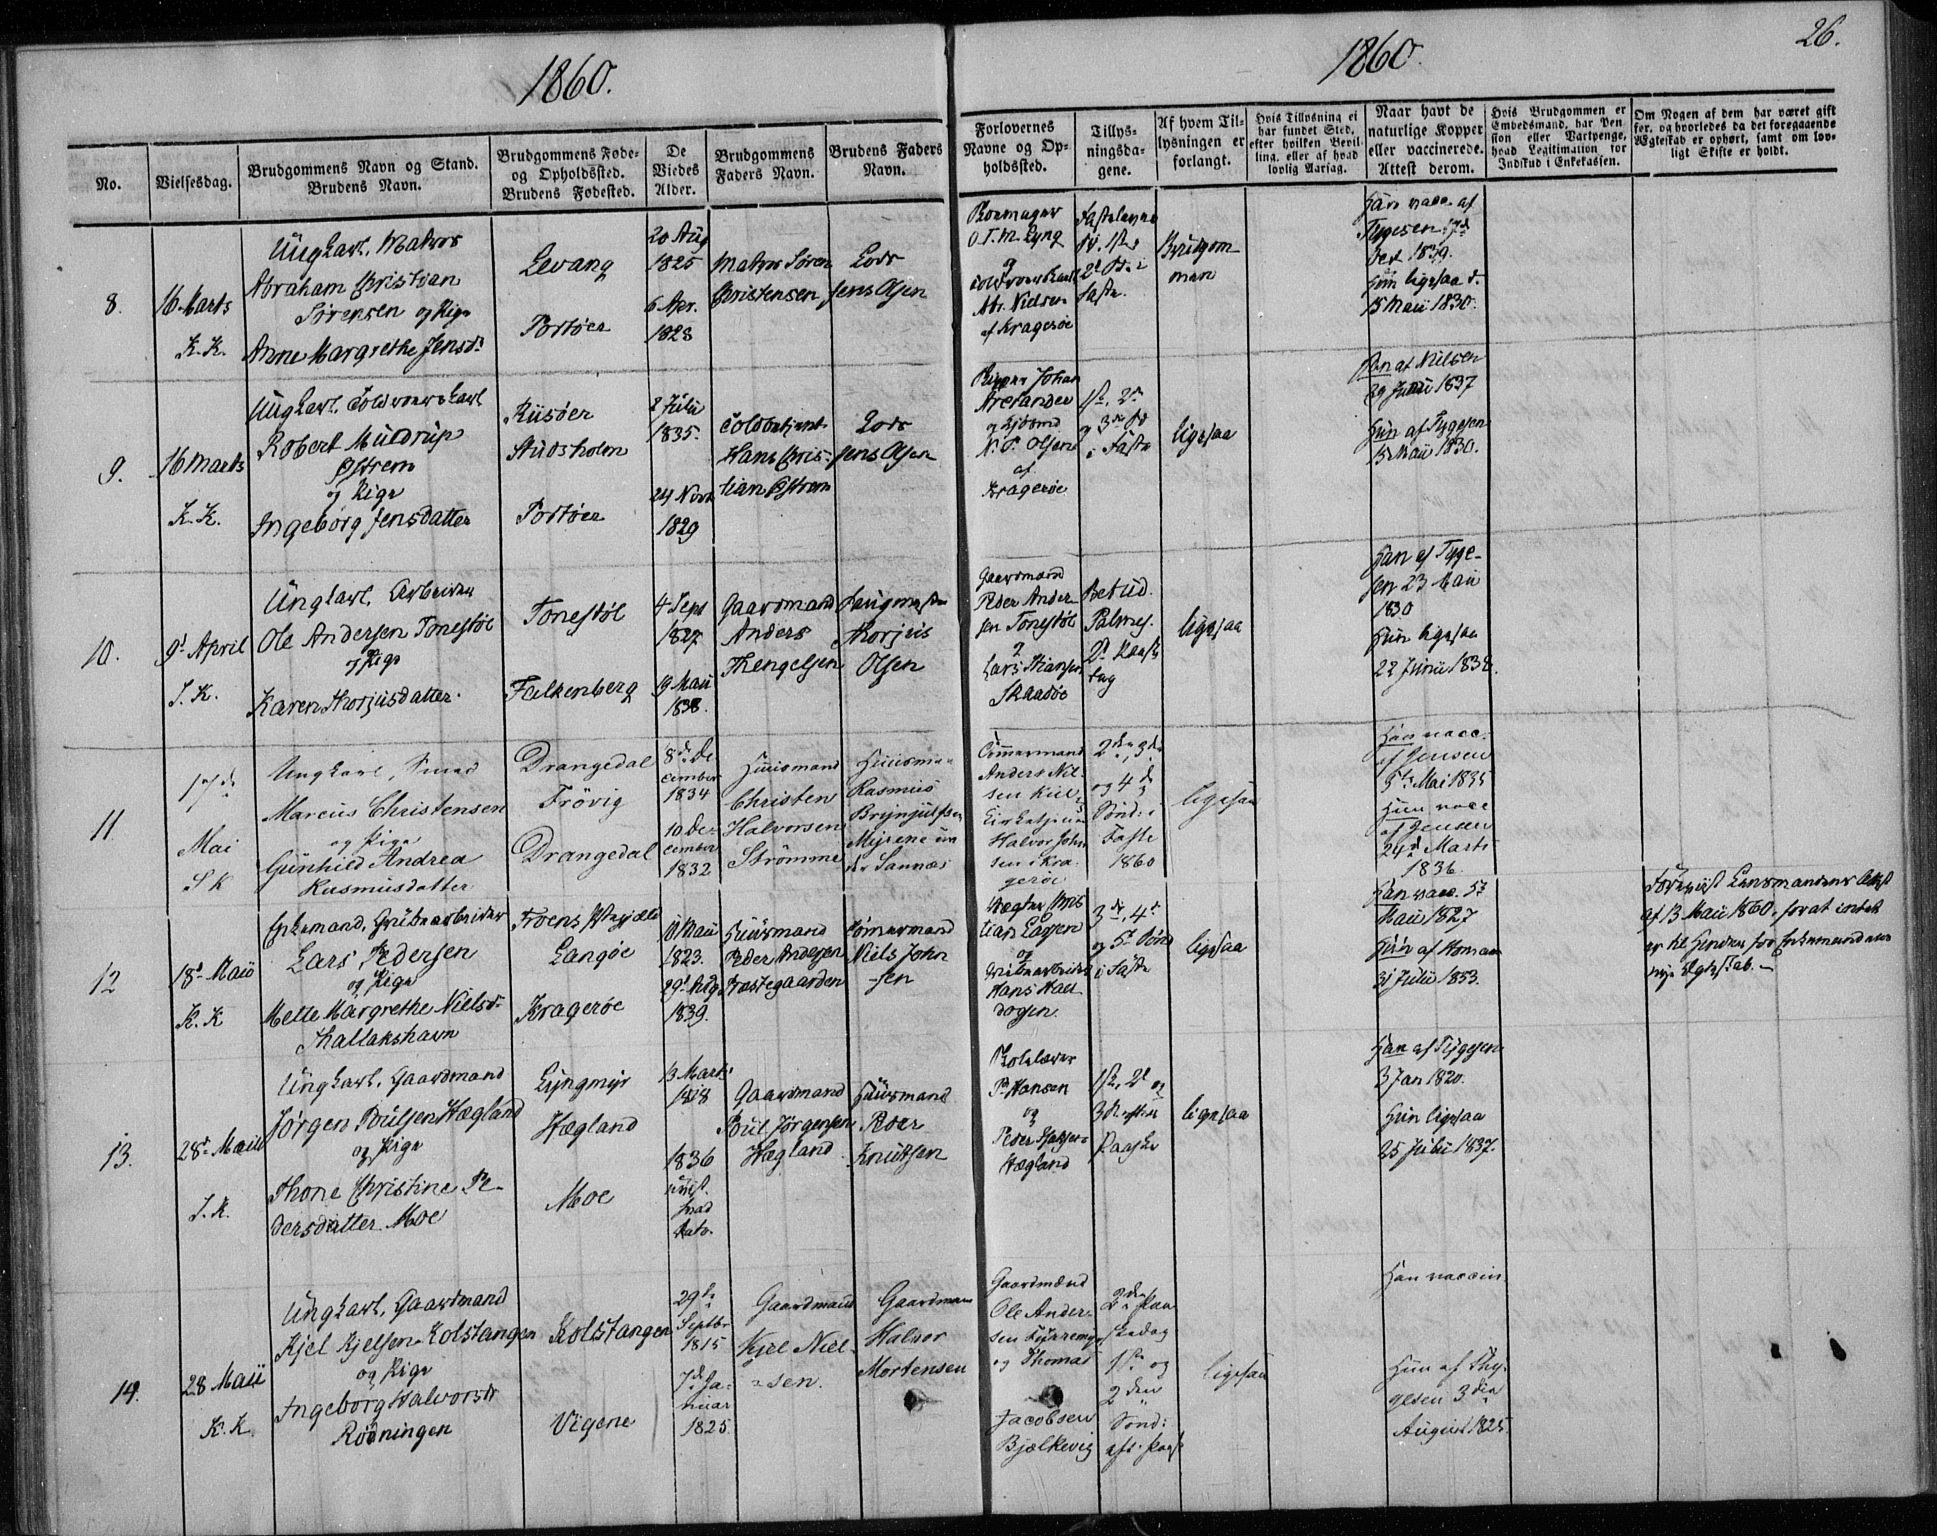 1860.
1860.
26.
No.
Vielsesdag.
Brudgommens Navn og Stand.
Brudens Navn.
Brudgommens Føde-
og Opholdssted.
Brudens Fødested.
De
Viedes
Alder.
Brudgommens
Faders Navn.
Brudens Faders
Navn.
Forlovernes
Navne og Op-
holdssted.
Tillys-
ningsda-
gene.
Af hvem Til-
lysningen er
forlangt.
Hvis Tillysning ei
har fundet Sted,
efter hvilken Bevil-
ling, eller af hvad
lovlig Aarsag.
Naar havt de
naturlige Kopper
eller vaccinerede.
Attest derom.
Hvis Brudgommen er
Embedsmand, har Pen-
sion eller Vartpenge,
hvad Legitimation for
Indskud i Enkekassen.
Om Nogen af dem har været gift
før, og hvorledes da det foregaaende
Ægteskab er ophørt, samt om lov-
ligt Skifte er holdt.
8.
16 Marts
K. K.
Ungkarl, Matros
Abraham Christian
Sørensen og Pige
Anne Margrethe Jensdr
Levang
Portøer
20 Aug
1825
6 Apr.
1828
Matros Søren
Christensen
Lods
Jens Olsen
O. T. M. Lyng
og
Abr. Nielsen
af Kragerøe
Fastelavns
2d S. i
Faste.
Brudgom
men
Han vacc. af
Tygesen
Oct 1839.
Hun ligesaa d.
15 Mai 1830.
9.
16 Marts
K. K.
Ungkarl, Toldroerskarl
Robert Muldrup
Østrem
og Pige
Ingeborg Jensdatter
Riisøer
Studsholm
Portøer
2 Juli
1835.
24 Novb
1829
Toldbetjent
Hans Chris-
tian Østrem
Lods
Jens Olsen
Johan
og
N. P. Olsen
af
Kragerøe
1st, 2d
og 3die S
i Faste
ligesaa
Han af Nielsen
29 Juni 1837
Hun af Tygesen
15 Mai 1830.
10.
9d April
S. K.
Ungkarl, Arbeider
Ole Andersen Tonestøl
og Pige
Karen Thorjusdatter.
Tonestøl
Falkenberg
4 Sept
1827
19 Mai
1838.
Gaardmand
Anders
Thengelsen
Thorjus
Olsen
Gaardmand
Peder Ander-
sen Tonestøl
og
Lars Stiansen
Skaadøe
Palmes.
2d Paaske
dag
ligesaa
Han af Tyge-
sen 23 Mai
1830
Hun ligesaa
22 Juni 1838.
11
17d
Mai
S K
Ungkarl, Smed
Marcus Christensen
og Pige
Gunhild Andrea
Rasmusdatter
Drangedal
Frövig
Drangedal
8de De
cember
1834
10 De-
cember
1832
Huusmand
Christen
Halvorsen
Strömme
Huusman
Rasmus
Brynjulfsen
Myrene un
der Sannæs
Tömmermand
Anders Nil-
sen Kiil
Halvor John
sen i Kra-
geröe
2den, 3die
og 4de
Sönd: i
Faste
1860
ligesaa
Han vacc.
af Jensen
5te Mai 1835
Hun vacc
af Jensen
24d Marts
1836.
12
18d Mai
K. K
Enkemand, Grubearbeider
Lars Pedersen
og Pige
Mette Margrethe Nielsdr
Thallakshavn
Langøe
Kragerøe
Mai
1823.
29d Aug
1839.
Huusmand
Peder Andersen
Præstegaarden
Tømmermand
Niels John
sen
og
Grubearbeider
Hans Hall
dogen.
3die, 4d
og 5t Sønd
i Faste
ligesaa
Han vacc. 5t
Mai 1827
Hun af Homan
31 Juli 1853.
Forevist Lensmandens Attest
af 13 Mai 1860, for at intet
er til Hinder for Enkemandens
nye Ægteskab. –
13.
28d Mai
S. K.
Ungkarl, Gaardmand
Jørgen Poulsen Hægland
og Pige
Thone Christine Pe-
dersdatter Moe
Lyngmyr
Hægland
Moe
13 Marts
1818
1836
uvist
hvad
Dato.
Gaardmand
Poul Jørgensen
Hægland
Huusmand
Peder
Knutsen
P. Hansen
og
Peder
Hægland
1st, 2d og
3d efter
Paaske
ligesaa
Han af Tygesen
3 Jan 1820.
Hun ligesaa
25 Juli 1837.
14.
28 Mai
K. K.
Ungkarl, Gaardmand
Kjel Kjelsen Kolstangen
og Pige
Ingeborg Halvorsdr
Rødningen
Kolstangen
Vigene
29de
Septbr
1815
7d Ja-
nuar
1825.
Gaardmand
Kjel Niel-
sen.
Gaardman
Halvor
Mortensen
Gaardmænd
Ole Ander-
sen Fyrremyr
og Thomas
Jacobsen
Bjælkevig
2den Paa
skedag
1ste og
2den
Sönd:
eft. Paask
ligesaa
Han vaccin
Hun af Thy-
gesen 3die
August 1825.